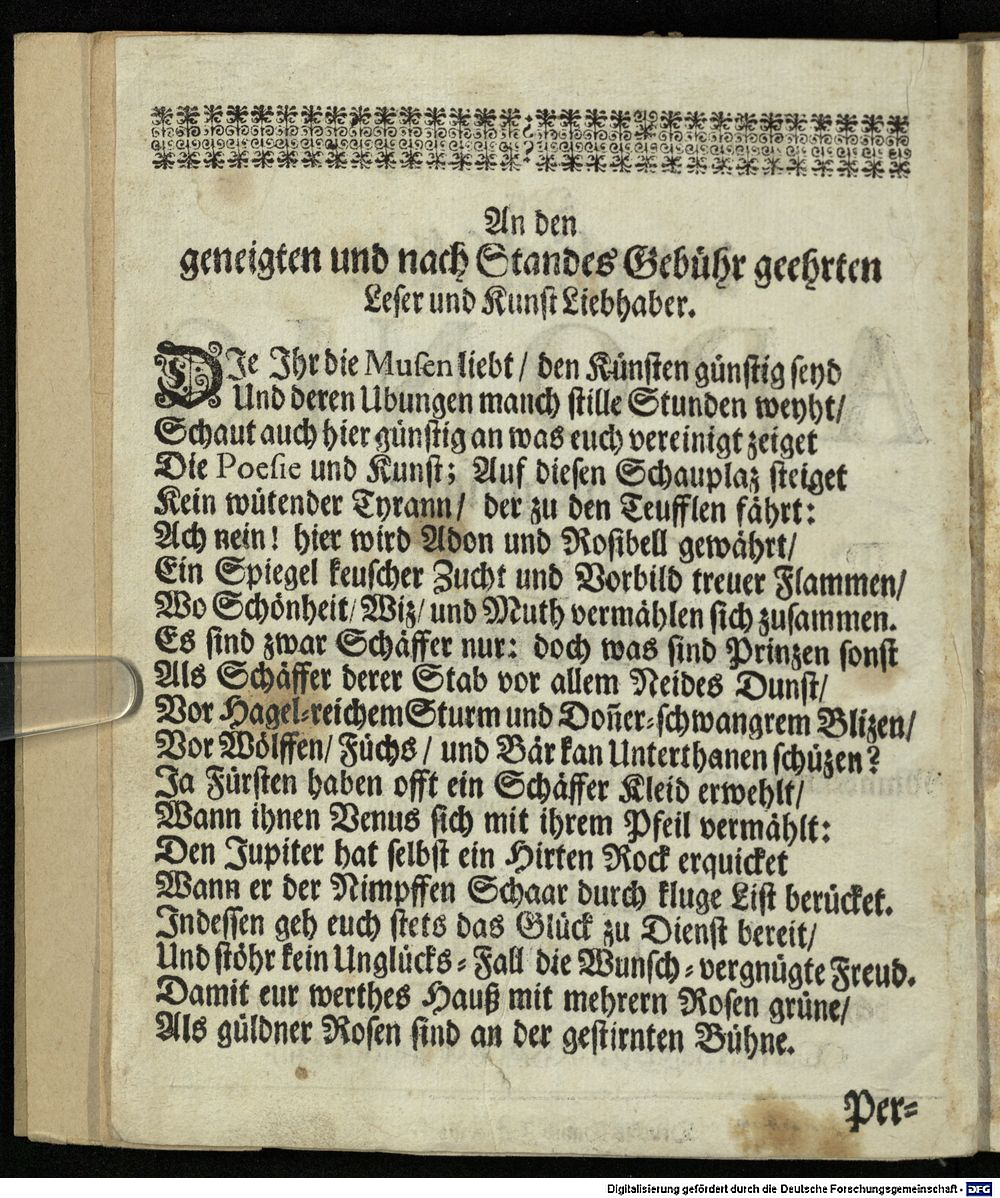 An den
geneigten und nach Standes Gebühr geehrten
Leser und Kunst Liebhaber.
DIe Ihr die Musen liebt / den Künsten günstig seyd
Und deren Ubungen manch stille Stunden weyht/
Schaut auch hier günstig an was euch vereinigt zeiget
Die Poesie und Kunst; Auf diesen Schauplaz steiget
Kein wütender Tyrann/ der zu den Teufflen fährt:
Ach nein! hier wird Adon und Rosibell gewährt/
Ein Spiegel keuscher Zucht und Vorbild treuer Flammen/
Wo Schönheit/ Wiz/ und Muth vermählen sich zusammen.
Es sind zwar Schäffer nur: doch was sind Prinzen sonst
Als Schäffer derer Stab vor allem Neides Dunst/
Vor Hagel-reichem Sturm und Doñer-schwangrem Blizen/
Vor Wölffen/ Füchs / und Bär kan Unterthanen schüzen?
Ja Fürsten haben offt ein Schäffer Kleid erwehlt/
Wann ihnen Venus sich mit ihrem Pfeil vermählt:
Den Jupiter hat selbst ein Hirten Rock erquicket
Wann er der Nimpffen Schaar durch kluge List berücket.
Indessen geh euch stets das Glück zu Dienst bereit/
Und stöhr kein Unglücks-Fall die Wunsch-vergnügte Freud.
Damit eur werthes Hauß mit mehrern Rosen grüne/
Als güldner Rosen sind an der gestirnten Bühne.
Per-
Digitalisierung gefördert durch die Deutsche Forschungsgemeinschaft - DFG